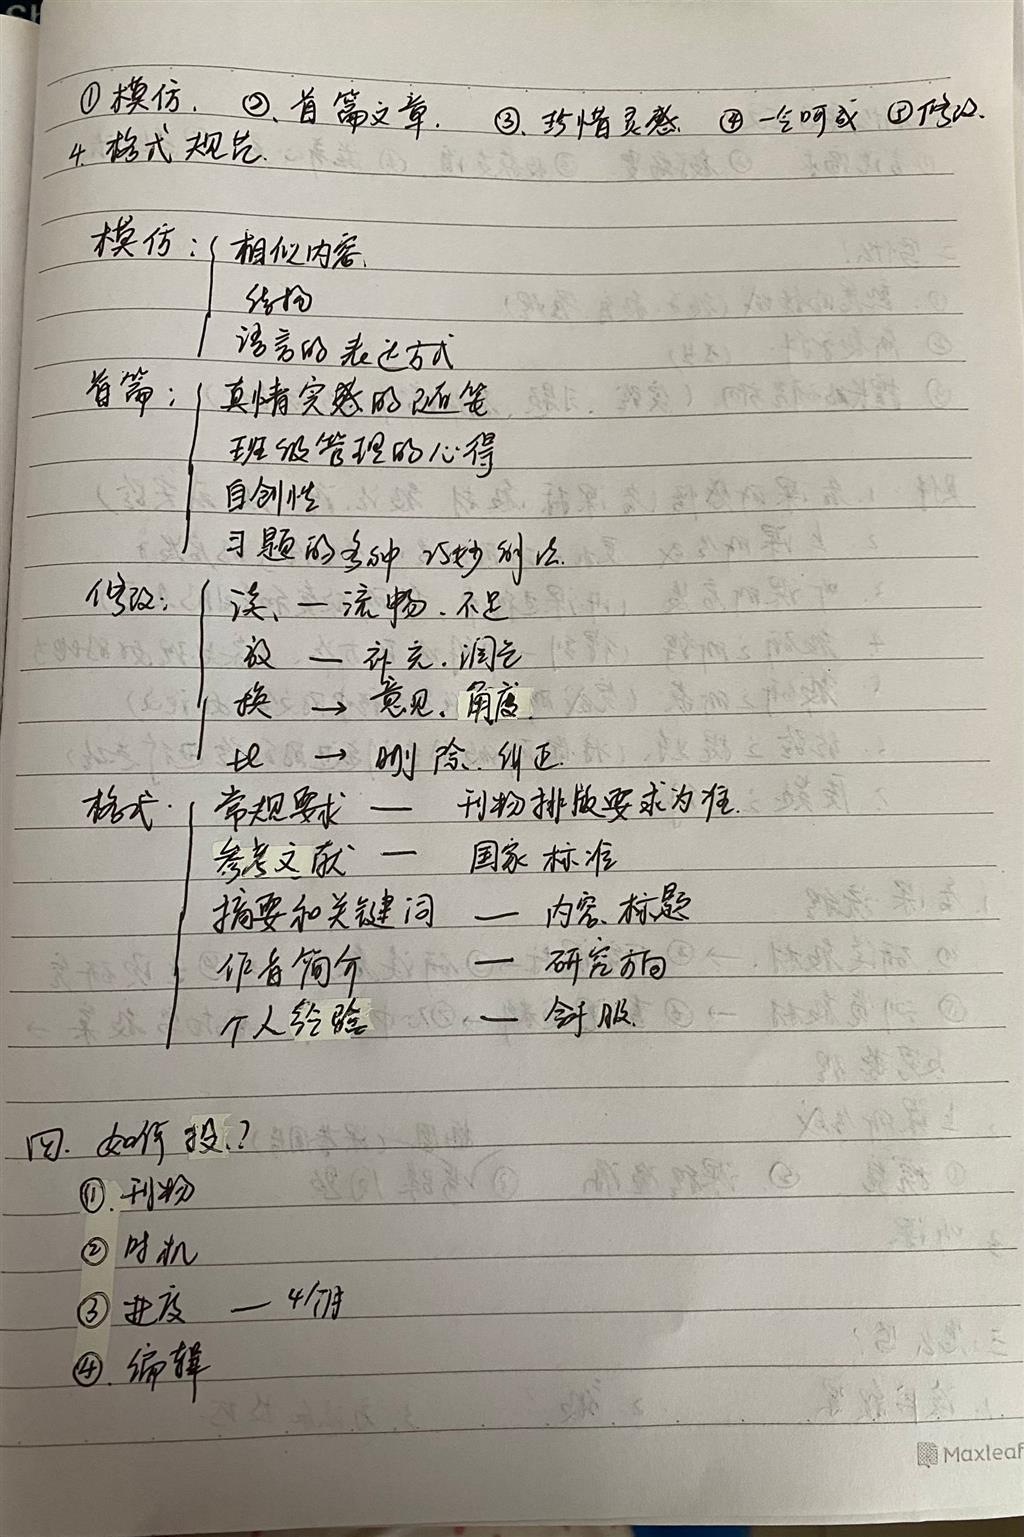 ①模仿. ②.首篇文章. ③.珍惜灵感 ④一气呵成 ⑤修改.
4.格式规范.
模仿: 相似内容.
结构
语言的表达方式
首篇: 真情实感的随笔
班级管理的心得
自创性
习题的多种巧妙解法.
修改: 读、—流畅.不足
放 — 补充.润色
换 → 意见.角度.
比 → 删除.纠正.
格式. 常规要求 — 刊物排版要求为准.
参考文献 — 国家标准
摘要和关键词 — 内容.标题
作者简介 — 研究方向
个人经验 —
四. 如何投.?
①.刊物
② 时机
③ 进度 — 4个月
④.编辑
Maxleaf